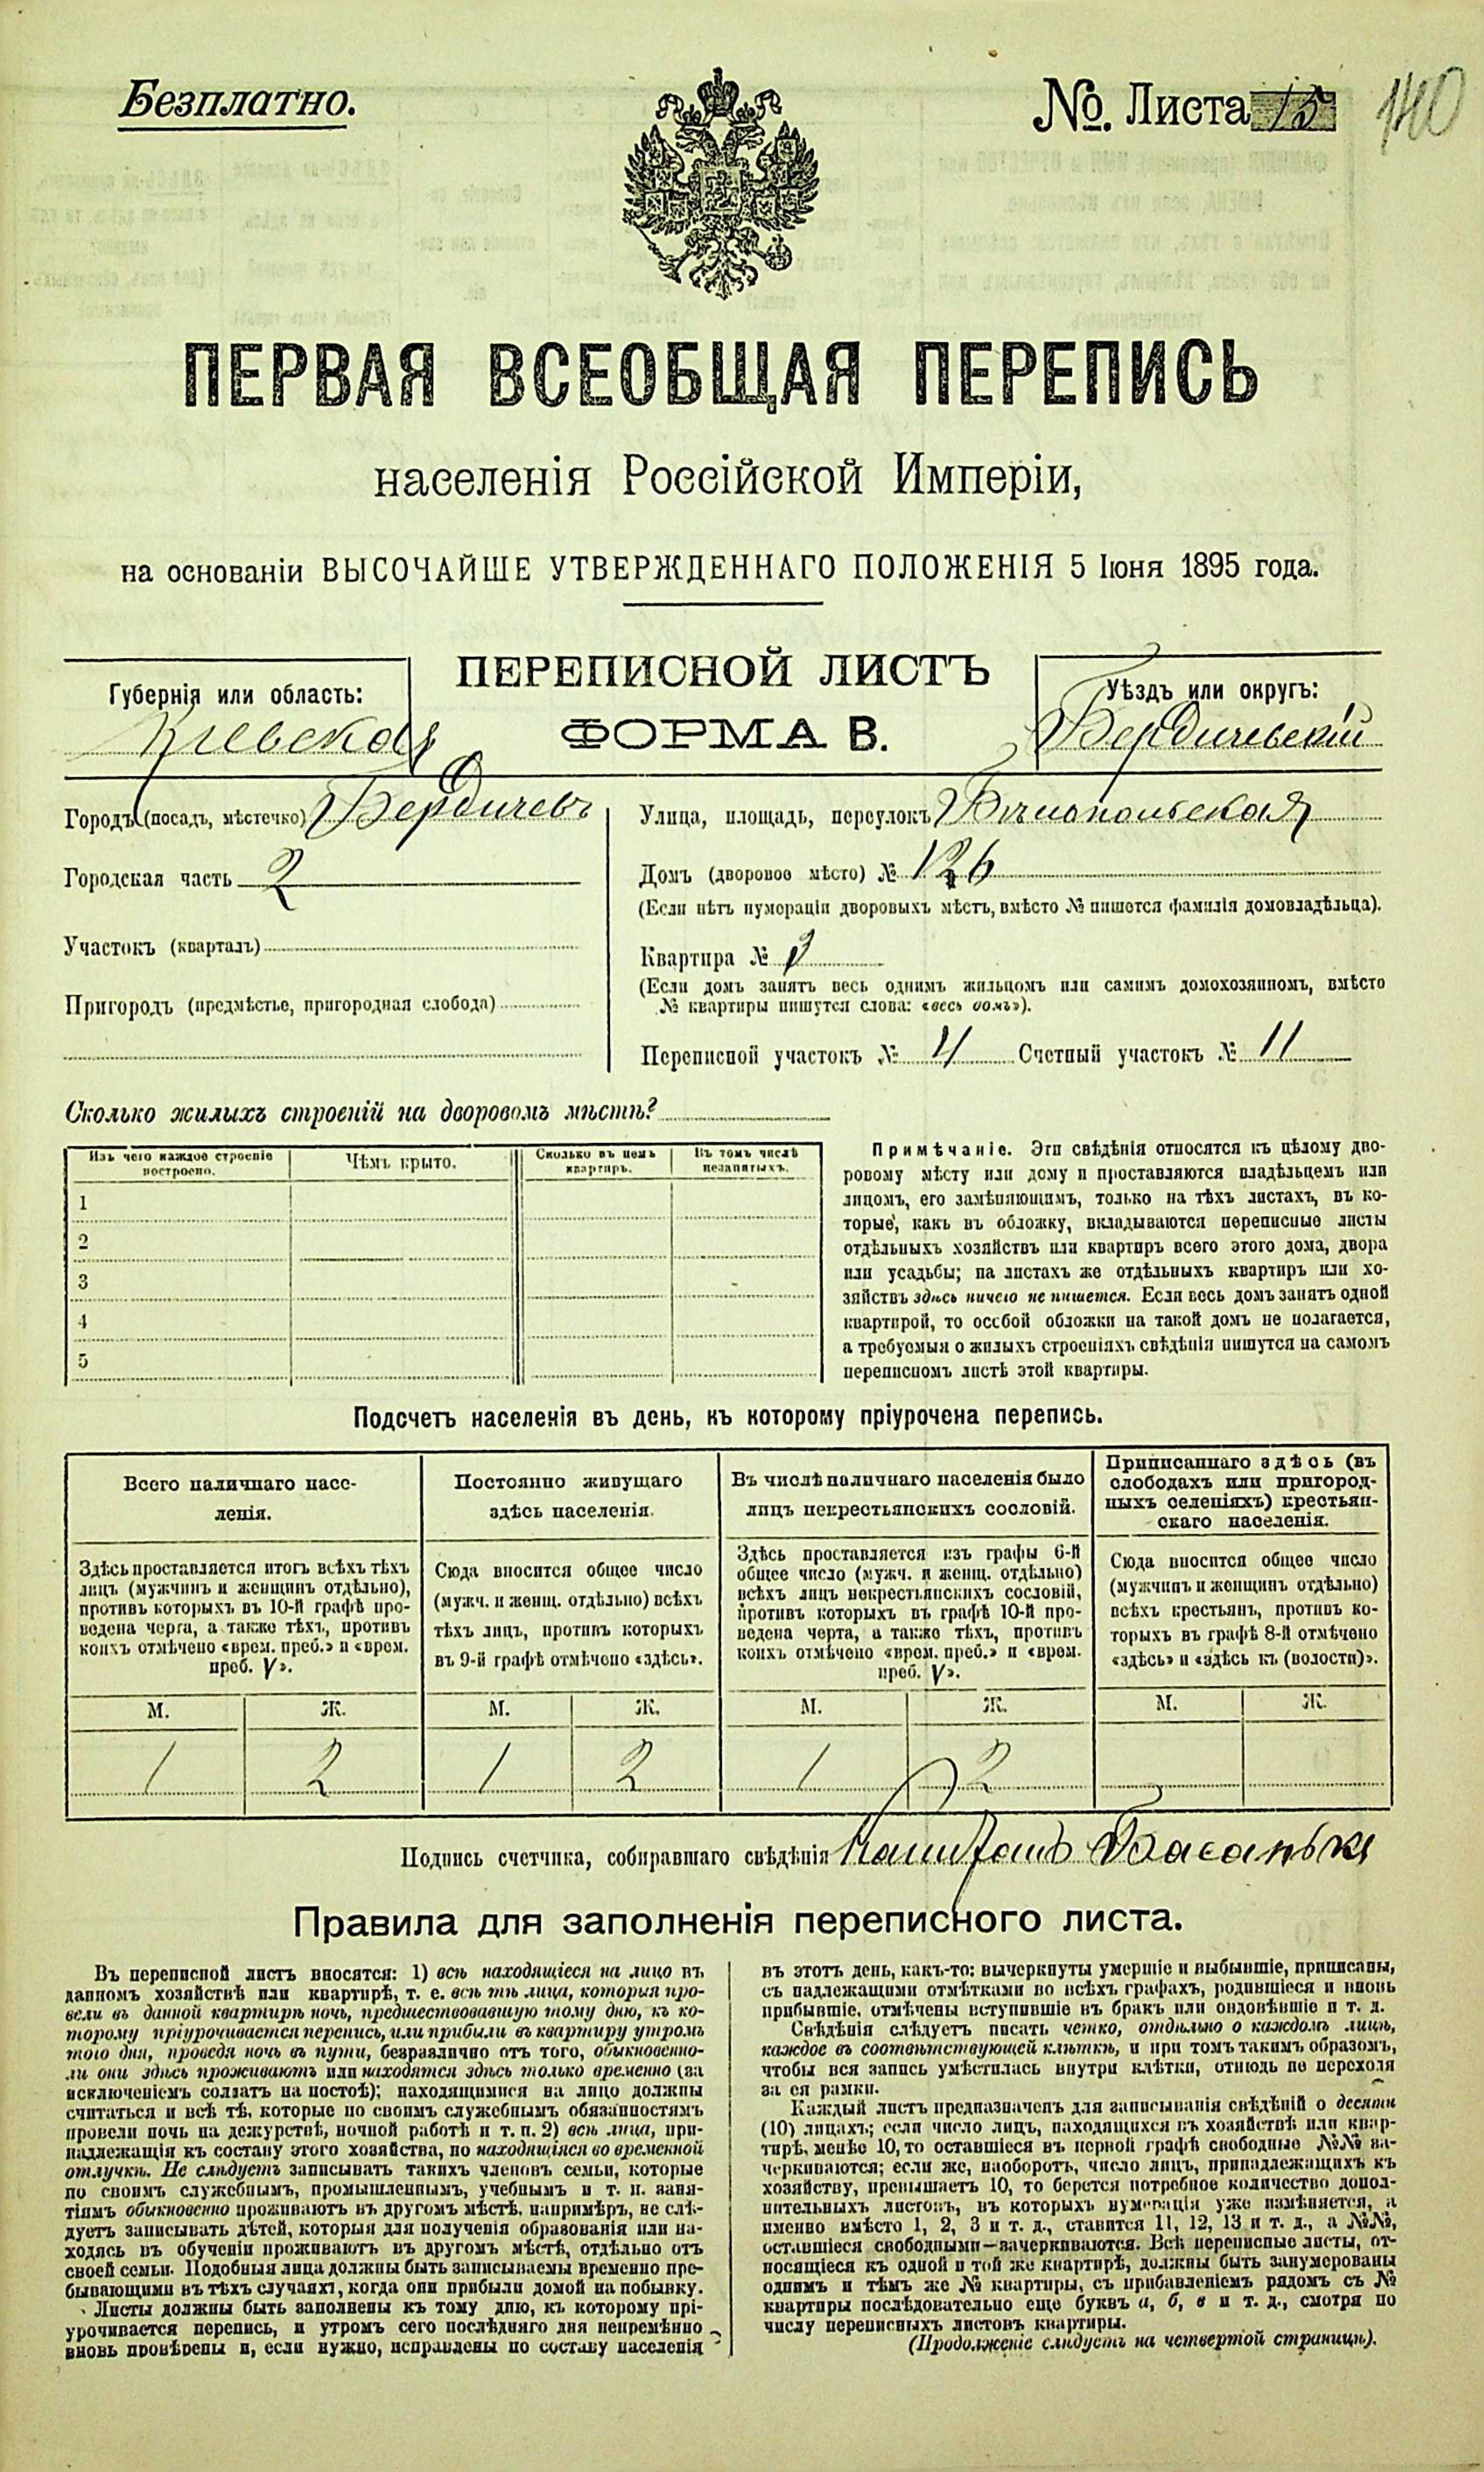 Безплатно.
№. Листа 15
140
ПЕРВАЯ ВСЕОБЩАЯ ПЕРЕПИСЬ
населенія Россійской Имперіи,
на основаніи ВЫСОЧАЙШЕ УТВЕРЖДЕННАГО ПОЛОЖЕНІЯ 5 Іюня 1895 года.
ПЕРЕПИСНОЙ ЛИСТЪ
ФОРМА В.
Губернія или область:
Кіевская
Уѣздъ или округъ:
Бердичевскій
Городъ (посадъ, мѣстечко) Бердичевъ
Городская часть 2
Участокъ (кварталъ)
Пригородъ (предмѣстье, пригородная слобода)
Улица, площадь, переулокъ Бѣлопольская
Домъ (дворовое мѣсто) № 126
(Если нѣтъ нумераціи дворовыхъ мѣстъ, вмѣсто № пишется фамилія домовладѣльца).
Квартира № 3
(Если домъ занятъ весь однимъ жильцомъ или самимъ домохозяиномъ, вмѣсто
№ квартиры пишутся слова: «весь домъ»).
Переписной участокъ № 4 Счетный участокъ № 11
Сколько жилыхъ строеній на дворовомъ мѣстѣ?
Изъ чего каждое строеніе построено.
Чѣмъ крыто.
Сколько въ немъ квартиръ.
Въ томъ числѣ незанятыхъ.
1
2
3
4
5
Примѣчаніе. Эти свѣдѣнія относятся къ цѣлому дво-
ровому мѣсту или дому и проставляются владѣльцемъ или
лицомъ, его замѣняющимъ, только на тѣхъ листахъ, въ ко-
торые, какъ въ обложку, вкладываются переписные листы
отдѣльныхъ хозяйствъ или квартиръ всего этого дома, двора
или усадьбы; на листахъ же отдѣльныхъ квартиръ или хо-
зяйствъ здѣсь ничего не пишется. Если весь домъ занятъ одной
квартирой, то особой обложки на такой домъ не полагается,
а требуемыя о жилыхъ строеніяхъ свѣдѣнія пишутся на самомъ
переписномъ листѣ этой квартиры.
Подсчетъ населенія въ день, къ которому пріурочена перепись.
Всего наличнаго насе-
ленія.
Здѣсь проставляется итогъ всѣхъ тѣхъ
лицъ (мужчинъ и женщинъ отдѣльно),
противъ которыхъ въ 10-й графѣ про-
ведена черта, а также тѣхъ, противъ
коихъ отмѣчено «врем. преб.» и «врем.
преб. V».
Постоянно живущаго
здѣсь населенія.
Сюда вносится общее число
(мужч. и женщ. отдѣльно) всѣхъ
тѣхъ лицъ, противъ которыхъ
въ 9-й графѣ отмѣчено «здѣсь».
Въ числѣ наличнаго населенія было
лицъ некрестьянскихъ сословій.
Здѣсь проставляется изъ графы 6-й
общее число (мужч. и женщ. отдѣльно)
всѣхъ лицъ некрестьянскихъ сословій,
противъ которыхъ въ графѣ 10-й про-
ведена черта, а также тѣхъ, противъ
коихъ отмѣчено «врем. преб.» и «врем.
преб. V».
Приписаннаго здѣсь (въ
слободахъ или пригород-
ныхъ селеніяхъ) крестьян-
скаго населенія.
Сюда вносится общее число
(мужчинъ и женщинъ отдѣльно)
всѣхъ крестьянъ, противъ ко-
торыхъ въ графѣ 8-й отмѣчено
«здѣсь» и «здѣсь къ (волости)».
М. Ж. М. Ж. М. Ж. М. Ж.
1 2 1 2 1 2
Подпись счетчика, собиравшаго свѣдѣнія
Правила для заполненія переписного листа.
Въ переписной листъ вносятся: 1) всѣ находящіеся на лицо въ
данномъ хозяйствѣ или квартирѣ, т. е. всѣ тѣ лица, которыя про-
вели въ данной квартирѣ ночь, предшествовавшую тому дню, къ ко-
торому пріурочивается перепись, или прибыли въ квартиру утромъ
того дня, проведя ночь въ пути, безразлично отъ того, обыкновенно-
ли они здѣсь проживаютъ или находятся здѣсь только временно (за
исключеніемъ солдатъ на постоѣ); находящимися на лицо должны
считаться и всѣ тѣ, которые по своимъ служебнымъ обязанностямъ
провели ночь на дежурствѣ, ночной работѣ и т. п. 2) всѣ лица, при-
надлежащія къ составу этого хозяйства, но находящіяся во временной
отлучкѣ. Не слѣдуетъ записывать такихъ членовъ семьи, которые
по своимъ служебнымъ, промышленнымъ, учебнымъ и т. п. заня-
тіямъ обыкновенно проживаютъ въ другомъ мѣстѣ, напримѣръ, не слѣ-
дуетъ записывать дѣтей, которыя для полученія образованія или на-
ходясь въ обученіи проживаютъ въ другомъ мѣстѣ, отдѣльно отъ
своей семьи. Подобныя лица должны быть записываемы временно пре-
бывающими въ тѣхъ случаяхъ, когда они прибыли домой на побывку.
Листы должны быть заполнены къ тому дню, къ которому прі-
урочивается перепись, и утромъ сего послѣдняго дня непремѣнно
вновь провѣрены и, если нужно, исправлены по составу населенія
въ этотъ день, какъ-то: вычеркнуты умершіе и выбывшіе, приписаны,
съ надлежащими отмѣтками во всѣхъ графахъ, родившіеся и вновь
прибывшіе, отмѣчены вступившіе въ бракъ или овдовѣвшіе и т. д.
Свѣдѣнія слѣдуетъ писать четко, отдѣльно о каждомъ лицѣ,
каждое въ соотвѣтствующей клѣткѣ, и при томъ такимъ образомъ,
чтобы вся запись умѣстилась внутри клѣтки, отнюдь не переходя
за ея рамки.
Каждый листъ предназначенъ для записыванія свѣдѣній о десяти
(10) лицахъ; если число лицъ, находящихся въ хозяйствѣ или квар-
тирѣ, менѣе 10, то оставшіеся въ первой графѣ свободные №№ за-
черкиваются; если же, наоборотъ, число лицъ, принадлежащихъ къ
хозяйству, превышаетъ 10, то берется потребное количество допол-
нительныхъ листовъ, въ которыхъ нумерація уже измѣняется, а
именно вмѣсто 1, 2, 3 и т. д., ставится 11, 12, 13 и т. д., а №№,
оставшіеся свободными—зачеркиваются. Всѣ переписные листы, от-
носящіеся къ одной и той же квартирѣ, должны быть занумерованы
однимъ и тѣмъ же № квартиры, съ прибавленіемъ рядомъ съ №
квартиры послѣдовательно еще буквъ а, б, в и т. д., смотря по
числу переписныхъ листовъ квартиры.
(Продолженіе слѣдуетъ на четвертой страницѣ).